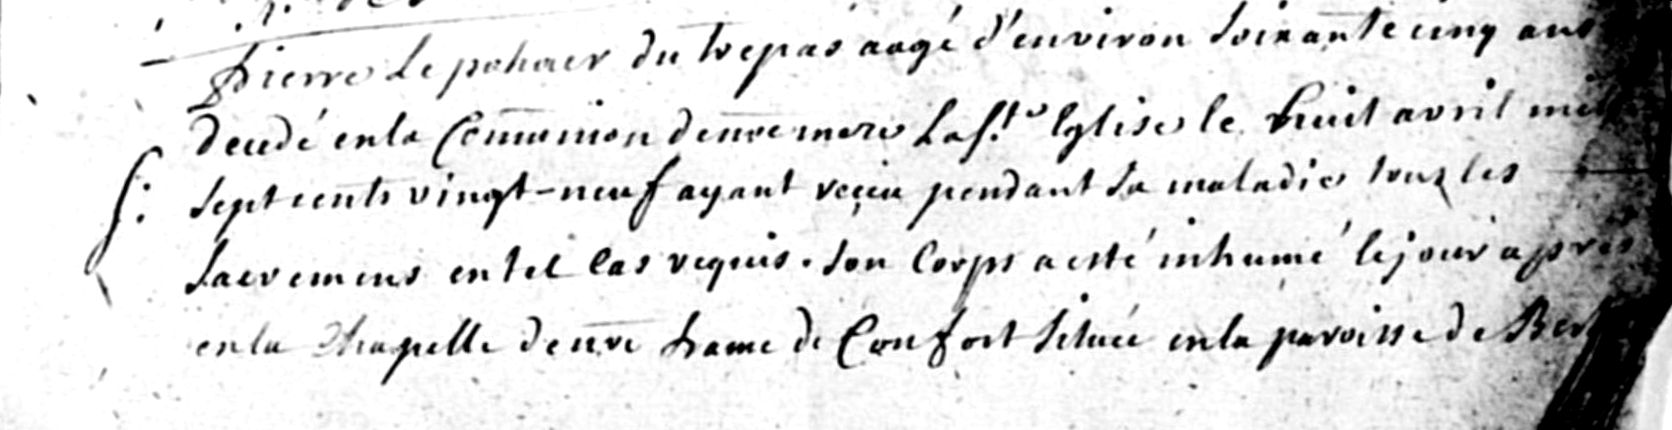 Pierre Le pohoer du trepas aagé d'environ soixante cinq ans
decedé en la Communion de nre mere La ste Eglise le huit avril mil
S. sept cents vingt-neuf ayant reçeu pendant sa maladie touz les
sacremens en tel cas requis. son corps a esté inhumé le jour apres
en la Chapelle de nre Dame de Confort située en la paroisse de